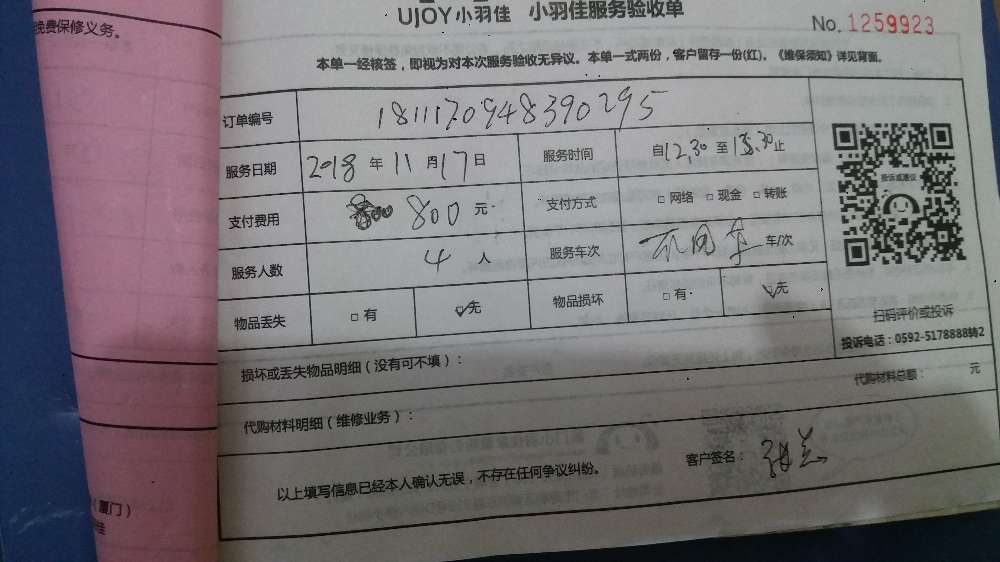 免费保修义务。
UJOY小羽佳 小羽佳服务验收单
No. 1259923
本单一经核签，即视为对本次服务验收无异议。本单一式两份，客户留存一份(红)。《维保须知》详见背面。
订单编号 1811170948390295
服务日期 2018 年 11 月 17 日 服务时间 自12.30 至 15.30止
支付费用 800 元 支付方式 □ 网络 □ 现金 □ 转账
服务人数 4 人 服务车次 不用车 车/次
物品丢失 □ 有 ☑无 物品损坏 □ 有 ☑无
投诉或建议
扫码评价或投诉
投诉电话：0592-5178888转2
损坏或丢失物品明细（没有可不填）：
代购材料明细（维修业务）： 代购材料总额： 元
以上填写信息已经本人确认无误，不存在任何争议纠纷。 客户签名：
（厦门）
佳